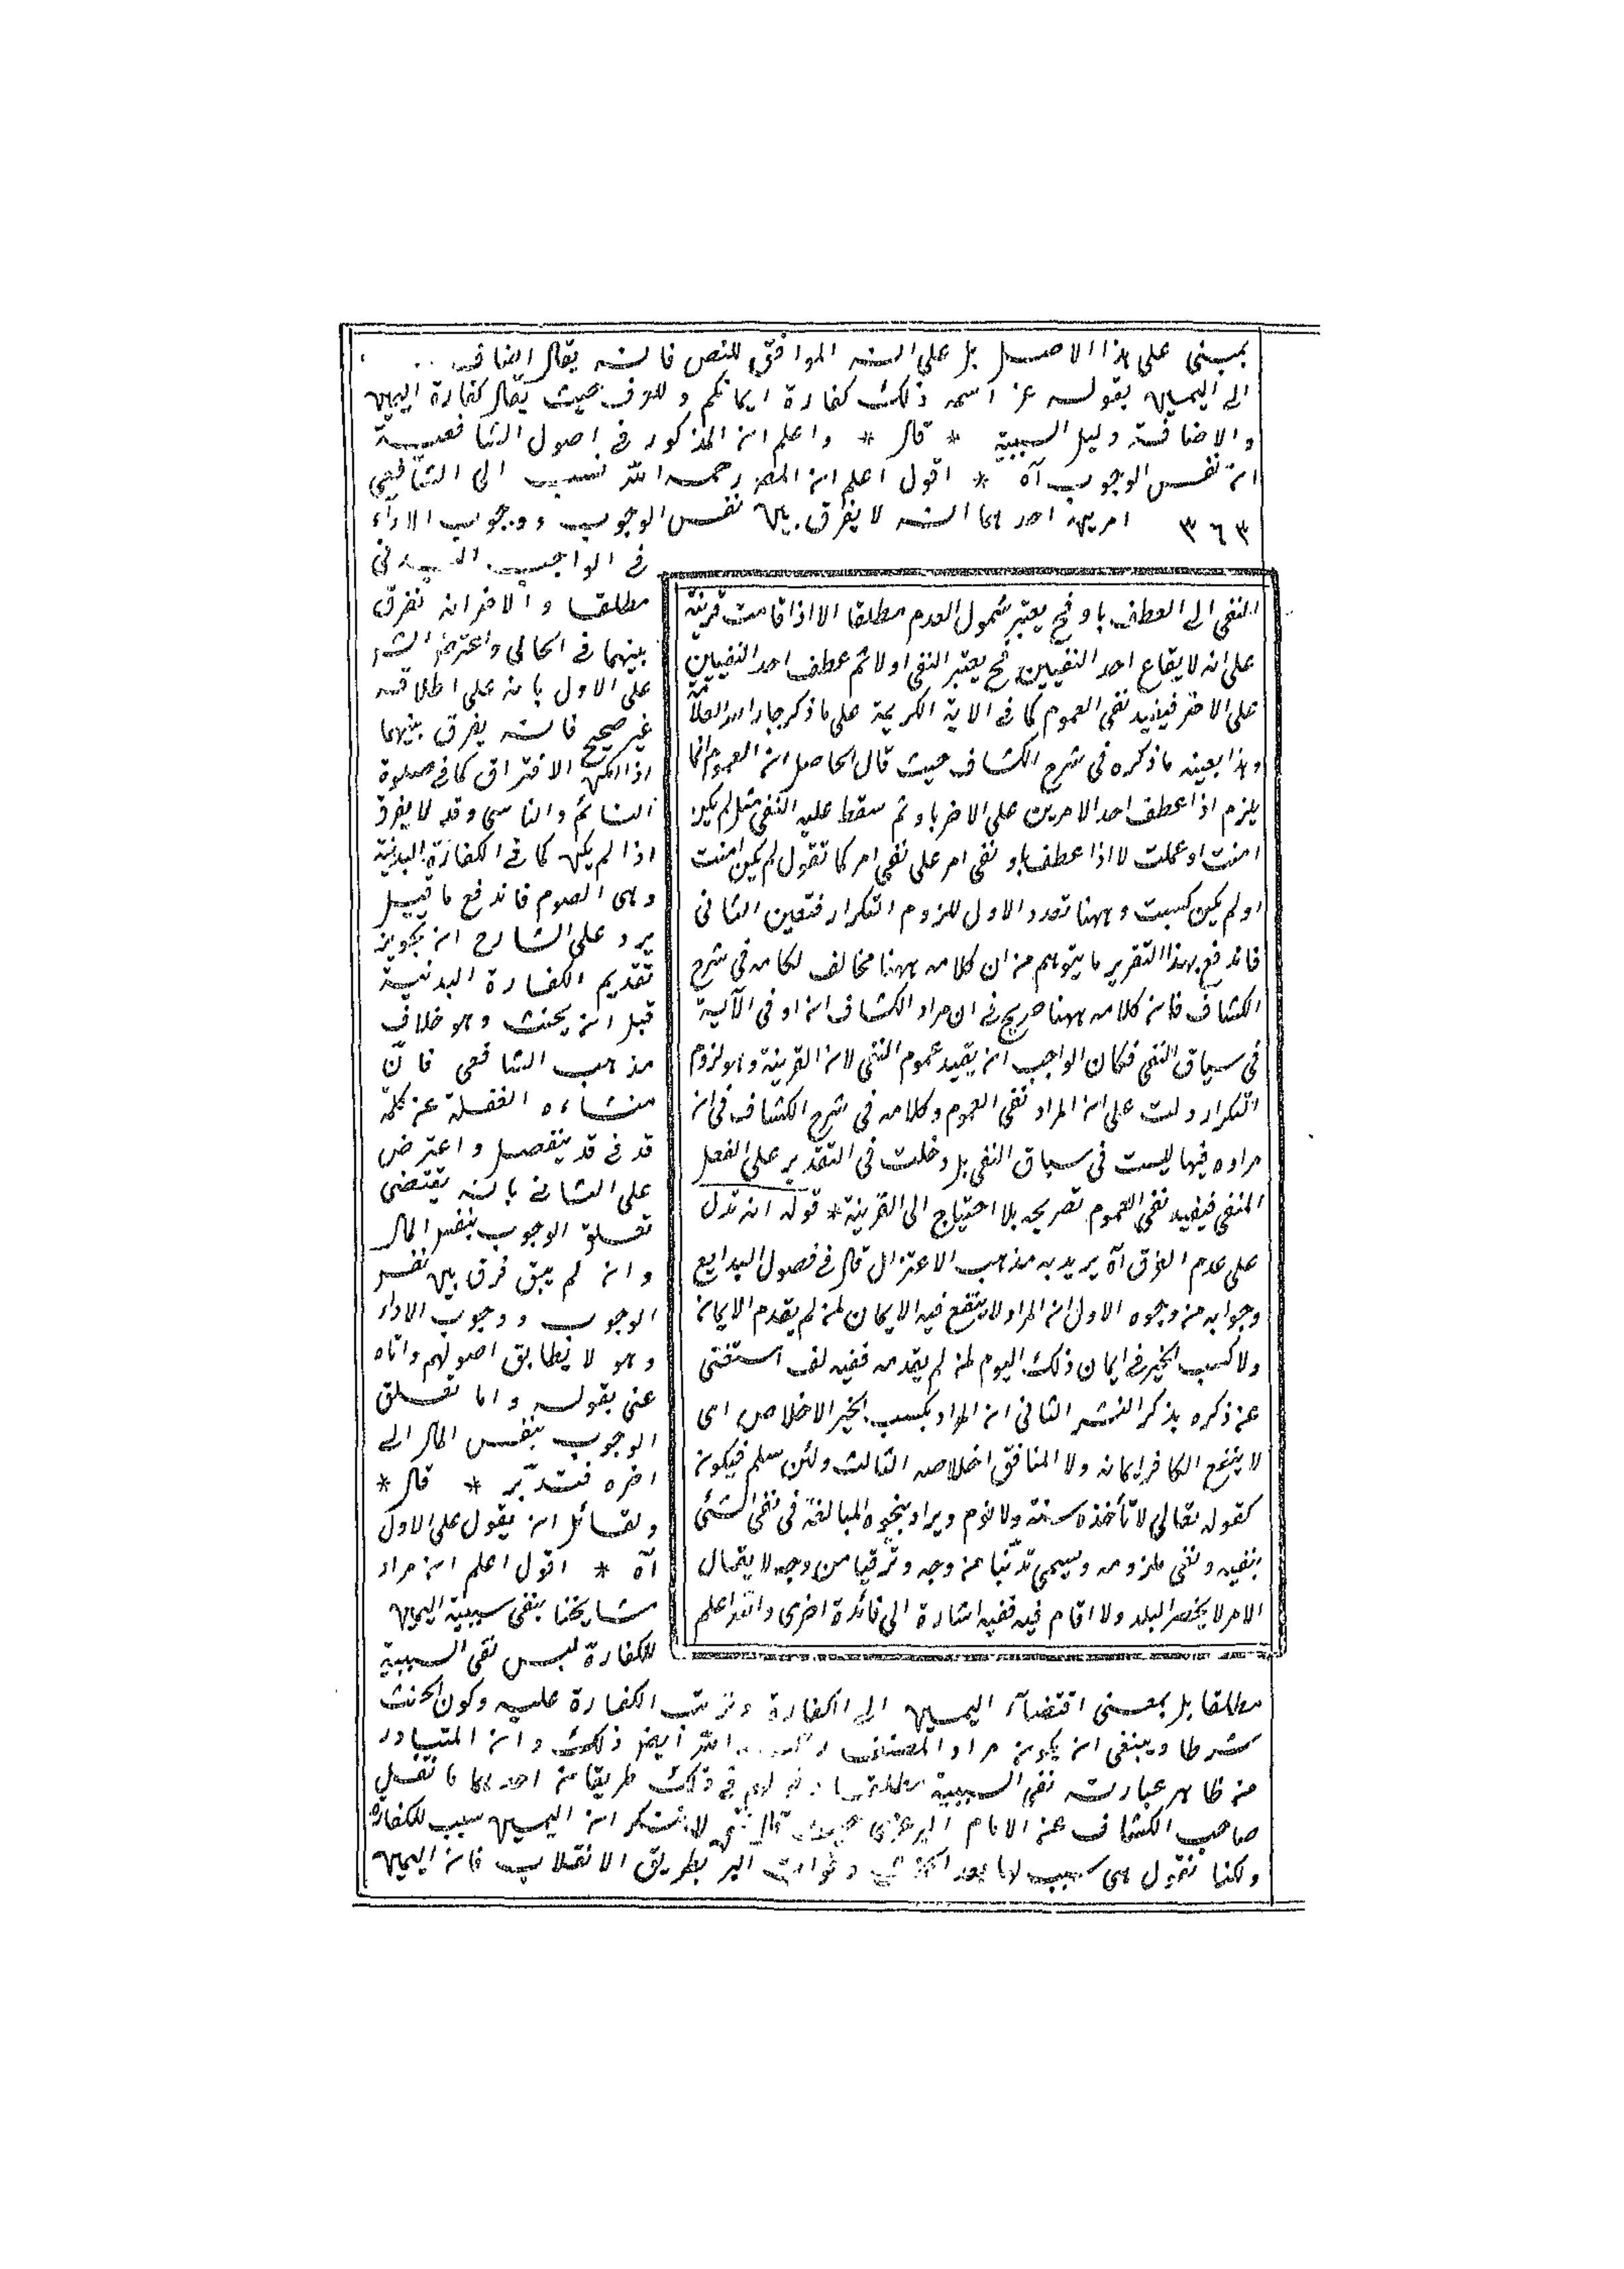 بمبنى على هذا الاصل بل على انه الموافق للنص فانه يقال اضاف
الى اليمين بقوله عز اسمه ذلك كفارة ايمانكم وللعرف حيث يقال كفارة اليمين
والاضافة دليل السببية * قال * واعلم ان المذكور فى اصول الشافعية
ان نفس الوجوب آه * اقول اعلم ان المصـ رحمه الله نسب الى الشافعى
٣٦٣ امرين احدهما انه لا يفرق بين نفس الوجوب ووجوب الاداء
فى الواجب البدنى
مطلقا والاخر انه يفرق
بينهما فى المالى واعترض الشـ
على الاول بانه على اطلاقه
غير صحيح فانه يفرق بينهما
اذا امكن الافتراق كما فى صلوة
النائم والناسى وقد لا يفرق
اذا لم يكن كما فى الكفارة البدنية
وهى الصوم فاندفع ما قيل
يرد على الشارح ان تجويز
تقديم الكفارة البدنية
قبل ان يحنث وهو خلاف
مذهب الشافعى فانّ
منشاءه الغفلة عن كلمة
قد فى قد ينفصل واعترض
على الثانى بانه يقتضى
تعلق الوجوب بنفس المال
وانه لم يبق فرق بين نفس
الوجوب ووجوب الاداء
وهو لا يطابق اصولهم واتاه
عنى بقوله واما تعلق
الوجوب بنفس المال الى
اخره فتدبّر * قال *
ولقائل ان يقول على الاول
آه * اقول اعلم ان مراد
مشايخنا بنفى سببية اليمين
للكفارة ليس نفى السببية
مطلقا بل بمعنى اقتضاء اليمين الى الكفارة وترتب الكفارة عليه وكون الحنث
شرطا وينبغى ان يكون مراد المصنف الله ايضا ذلك وان المتبادر
من ظاهر عبارته نفى السببية مطلقا فى ذلك طريقان احدهما ما نقل
صاحب الكشاف عن الامام حيث قال لا ننكر ان اليمين سبب للكفارة
ولكنا نقول هى سبب لها بعد الحنث وفوات البر بطريق الانقلاب فان اليمين
النفى الى العطف باو فح يعتبر شمول العدم مطلقا الا اذا قامت قرينة
على انه لا يقاع احد النفيين فح يعتبر النفى اولا ثم عطف احد النفيين
على الاخر فيفيد نفى العموم كما فى الاية الكريمة على ما ذكر جار الله العلامة
وهذا بعينه ما ذكره فى شرح الكشاف حيث قال الحاصل ان العموم انما
يلزم اذا عطف احد الامرين على الاخر باو ثم سقط عليه النفى مثل لم يكن
امنت او عملت لا اذا عطف باو نفى امر على نفى امر كما تقول لم يكن امنت
او لم يكن كسبت وههنا تعدد الاول للزوم التكرار فتعين الثانى
فاندفع بهذا التقرير ما يتوهم من ان كلامه ههنا مخالف لكلامه فى شرح
الكشاف فان كلامه ههنا صريح فى ان مراد الكشاف ان او فى الآية
فى سياق النفى فكان الواجب ان يفيد عموم النفى لان القرينة وهو لزوم
التكرار دلت على ان المراد نفى العموم وكلامه فى شرح الكشاف فى ان
مراده فيها ليست فى سياق النفى بل دخلت فى التقدير على الفعل
المنفى فيفيد نفى العموم تصريحه بلا احتياج الى القرينة * قوله انه تدل
على عدم الفرق آه يريد به مذهب الاعتزال قال فى فصول البدايع
وجوابه من وجوه الاول ان المراد لا ينفع فيه الايمان لمن لم يقدم الايمان
ولا كسب الخير فى ايمان ذلك اليوم لمن لم يقدمه ففيه لف استغنى
عن ذكره بذكر النشر الثانى ان المراد بكسب الخير الاخلاص اى
لا ينفع الكافر ايمانه ولا المنافق اخلاصه الثالث ولئن سلم فيكون
كقوله تعالى لا تأخذه سنة ولا نوم ويراد بنحوه المبالغة فى نفى الشئ
بنفيه ونفى ملزومه ويسمى تدنّيا من وجه وترقيا من وجه لا يقال
الامر لا يخصر البلد ولا اقام فيه ففيه اشارة الى فائدة اخرى والله اعلم